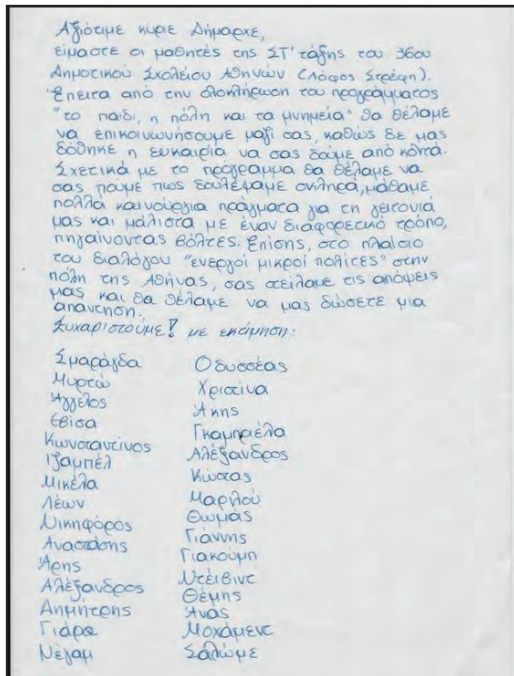 Αξιότιμε κύριε Δήμαρχε,
είμαστε οι μαθητές της ΣΤ' τάξης του 36ου
Δημοτικού Σχολείου Αθηνών (Λόφος Στρέφη).
Έπειτα από την ολοκλήρωση του προγράμματος
"το παιδί, η πόλη και τα μνημεία" θα θέλαμε
να επικοινωνήσουμε μαζί σας, καθώς δε μας
δόθηκε η ευκαιρία να σας δούμε από κοντά.
Σχετικά με το πρόγραμμα θα θέλαμε να
σας πούμε πως δουλέψαμε σκληρά, μάθαμε
πολλά καινούργια πράγματα για τη γειτονιά
μας και μάλιστα με έναν διαφορετικό τρόπο,
πηγαίνοντας βόλτες. Επίσης, στο πλαίσιο
του διαλόγου "ενεργοί μικροί πολίτες" στην
πόλη της Αθήνας, σας στείλαμε τις απόψεις
μας και θα θέλαμε να μας δώσετε μια
απάντηση.
Ευχαριστούμε! με εκτίμηση:
Σμαράγδα
Μυρτώ
Άγγελος
Εβίσα
Κωνσταντίνος
Ιζαμπέλ
Μικέλα
Λέων
Νικηφόρος
Αναστάσης
Άρης
Αλέξανδρος
Δημήτρης
Γιάρα
Νέγαμ
Οδυσσέας
Χριστίνα
Άκης
Γκαμπριέλα
Αλέξανδρος
Κώστας
Μαριλού
Θωμάς
Γιάννης
Γιακούμπ
Ντέιβιντ
Θέμης
Άνας
Μοχάμεντ
Σαλώμε